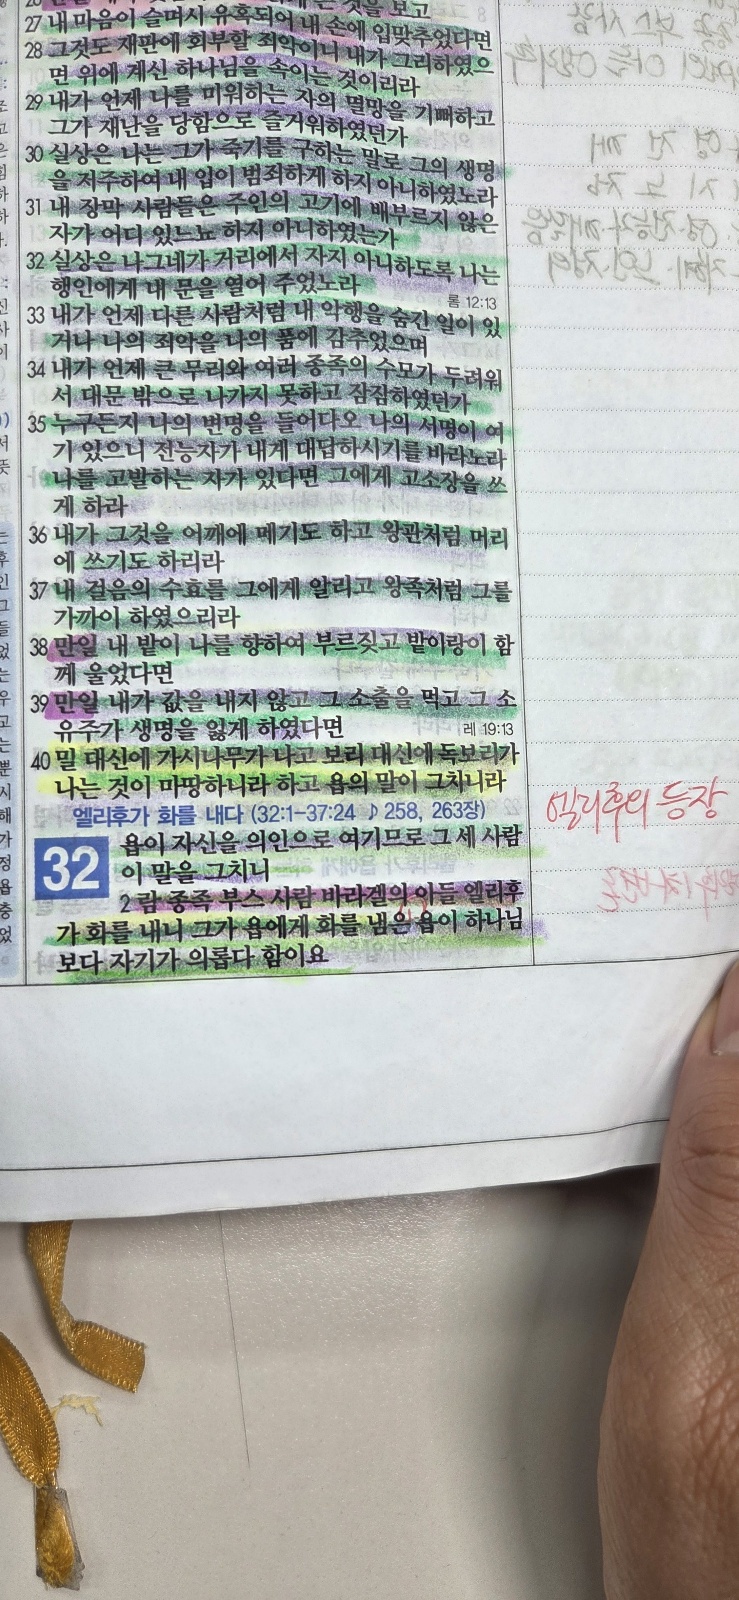 것을 보고
27 내 마음이 슬며시 유혹되어 내 손에 입맞추었다면
28 그것도 재판에 회부할 죄악이니 내가 그리하였으
면 위에 계신 하나님을 속이는 것이리라
29 내가 언제 나를 미워하는 자의 멸망을 기뻐하고
그가 재난을 당함으로 즐거워하였던가
30 실상은 나는 그가 죽기를 구하는 말로 그의 생명
을 저주하여 내 입이 범죄하게 하지 아니하였노라
31 내 장막 사람들은 주인의 고기에 배부르지 않은
자가 어디 있느뇨 하지 아니하였는가
32 실상은 나그네가 거리에서 자지 아니하도록 나는
행인에게 내 문을 열어 주었노라
롬 12:13
33 내가 언제 다른 사람처럼 내 악행을 숨긴 일이 있
거나 나의 죄악을 나의 품에 감추었으며
34 내가 언제 큰 무리와 여러 종족의 수모가 두려워
서 대문 밖으로 나가지 못하고 잠잠하였던가
35 누구든지 나의 변명을 들어다오 나의 서명이 여
기 있으니 전능자가 내게 대답하시기를 바라노라
나를 고발하는 자가 있다면 그에게 고소장을 쓰
게 하라
36 내가 그것을 어깨에 메기도 하고 왕관처럼 머리
에 쓰기도 하리라
37 내 걸음의 수효를 그에게 알리고 왕족처럼 그를
가까이 하였으리라
38 만일 내 밭이 나를 향하여 부르짖고 밭이랑이 함
께 울었다면
39 만일 내가 값을 내지 않고 그 소출을 먹고 그 소
유주가 생명을 잃게 하였다면 레 19:13
40 밀 대신에 가시나무가 나고 보리 대신에 독보리가
나는 것이 마땅하니라 하고 욥의 말이 그치니라
엘리후가 화를 내다 (32:1-37:24 ♪ 258, 263장)
32 욥이 자신을 의인으로 여기므로 그 세 사람
이 말을 그치니
2 람 종족 부스 사람 바라겔의 아들 엘리후
가 화를 내니 그가 욥에게 화를 냄은 욥이 하나님
보다 자기가 의롭다 함이요
엘리후의 등장